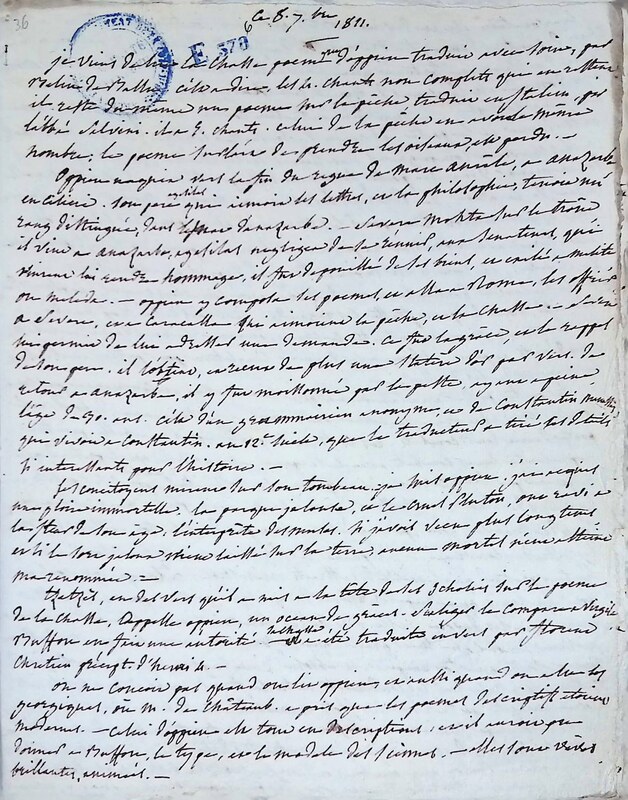 36
ce 8. 7.bre 1811.
E 570
je viens de lire la Chasse poeme d'oppien traduit avec soin, par
Belin de Ballu c'est a dire, les 4. chants non complets qui en restent
il reste du meme un poeme sur la pêche traduit en italien, par
l'abbé Salvini. il a 5. chants. celui de la pêche en a voit le même
nombre, le poeme sur l'art de prendre les oiseaux est perdu. —
Oppien naquit vers la fin du regne de marc aurele, a anazarbe
en Cilicie. son pere agesilas qui aimoit les lettres, et la philosophie, tenoit un
rang distingué, dans le senat d'anazarbe. — Severe monta sur le trône
il vint a anazarbe, agesilas negligea de se réunir, aux Senateurs, qui
vinrent lui rendre hommage, il fut depouillé de ses biens, et exilé a melite
ou meleda. — oppien y composa ses poemes, et alla a Rome, les offrir
a Severe, et a Caracalla qui aimoient la pêche, et la chasse. — Severe
lui permit de lui adresser une demande. Ce fut la grâce, et le rappel
de son pere. il l'obtint, et reçut de plus une statère d'or par vers. de
retour a anazarbe, il y fut moissonné par la peste, ayant a peine
l'âge de 30. ans. C'est d'un grammairien anonyme, et de Constantin manassés
qui vivoit a Constantin. au 12e siecle, que le traducteur a tiré ces details
si interessants pour l'histoire. —
Ses concitoyens mirent sur son tombeau. je suis oppien, j'ai acquis
une gloire immortelle. la parque jalouse, et le cruel Pluton, ont ravi a
la fleur de son age, l'interprête des muses. si j'avois vecu plus longtems
et si le sort jaloux m'eut laissé sur la terre, aucun mortel n'eut atteint
ma renommée. —
tzetzés, en des vers qu'il a mis a la tête de ses scholies sur le poeme
de la chasse, appelle oppien, un ocean de graces. Scaliger le compare a Virgile
Buffon en fait une autorité. la chasse a été traduite en vers par florent
Chretien precept. d'henri 4. —
on ne concoit pas quand on lit oppien, et aussi quand on a lu les
georgiques, ou m. de Chateaub. a pris que les poemes descriptifs étoient
modernes. — Celui d'oppien est tout en descriptions, et il auroit pu
donner a Buffon, le type, et le modele des siennes. — elles sont vives
brillantes, animées. —